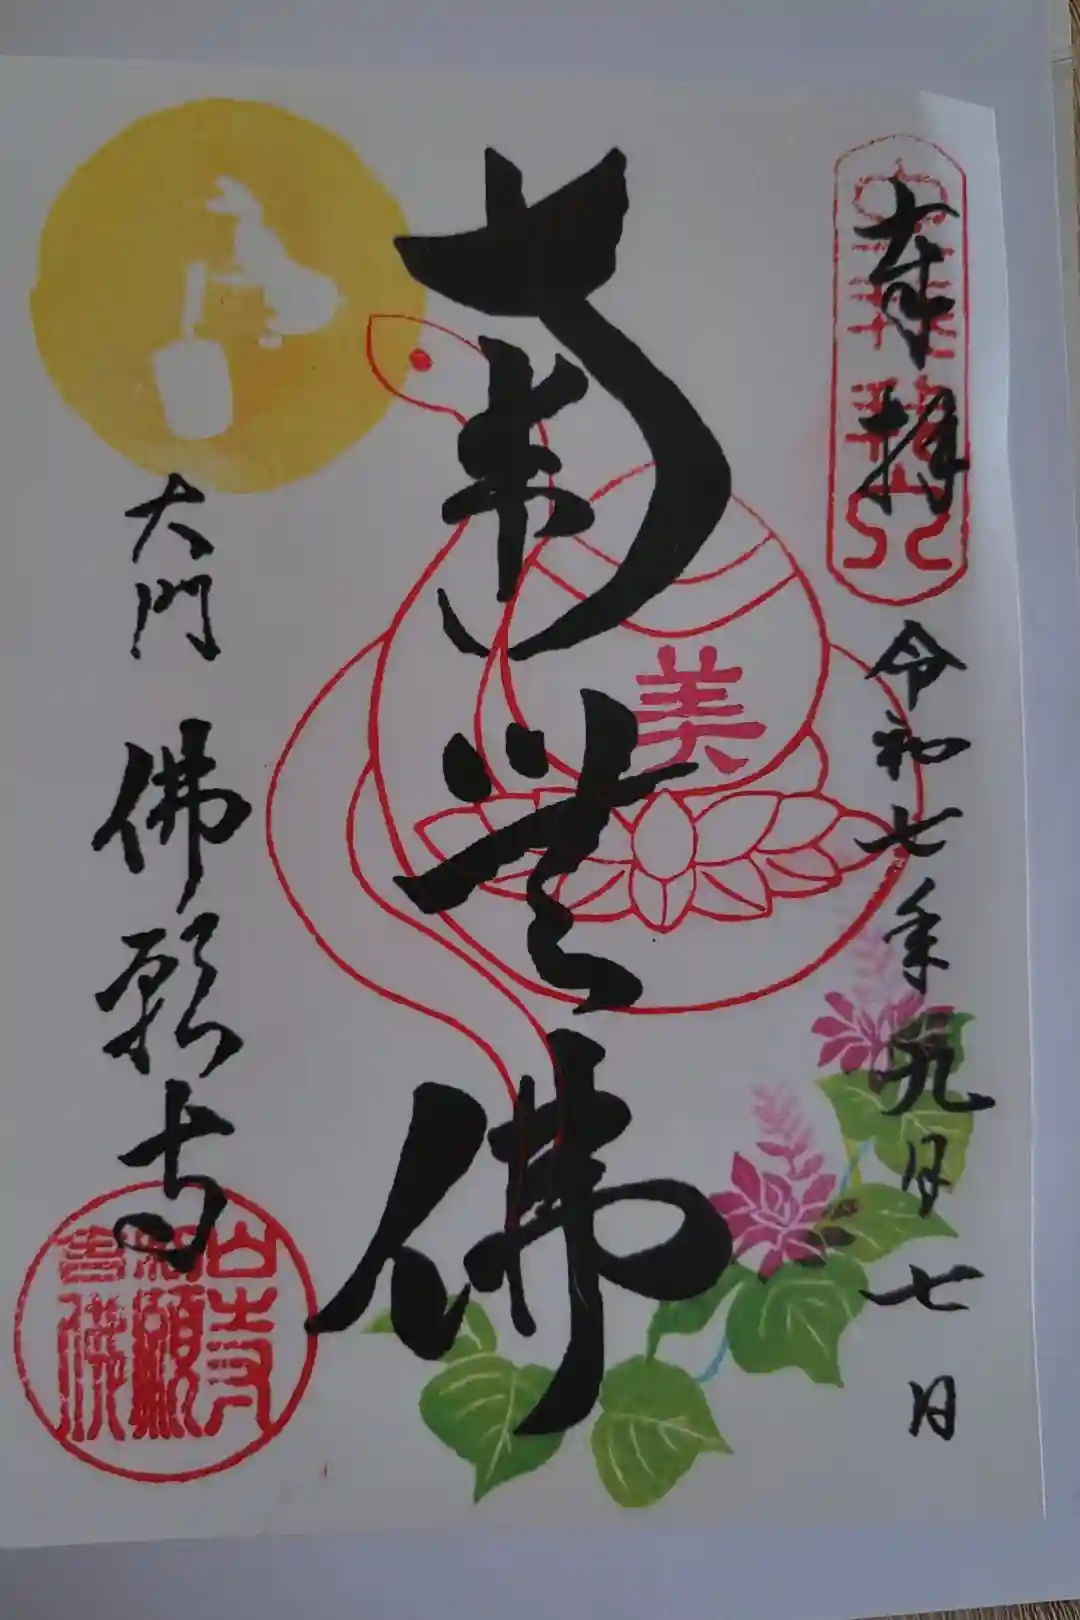 奉拝
令和七年九月七日
南無佛
美
大門 佛願寺